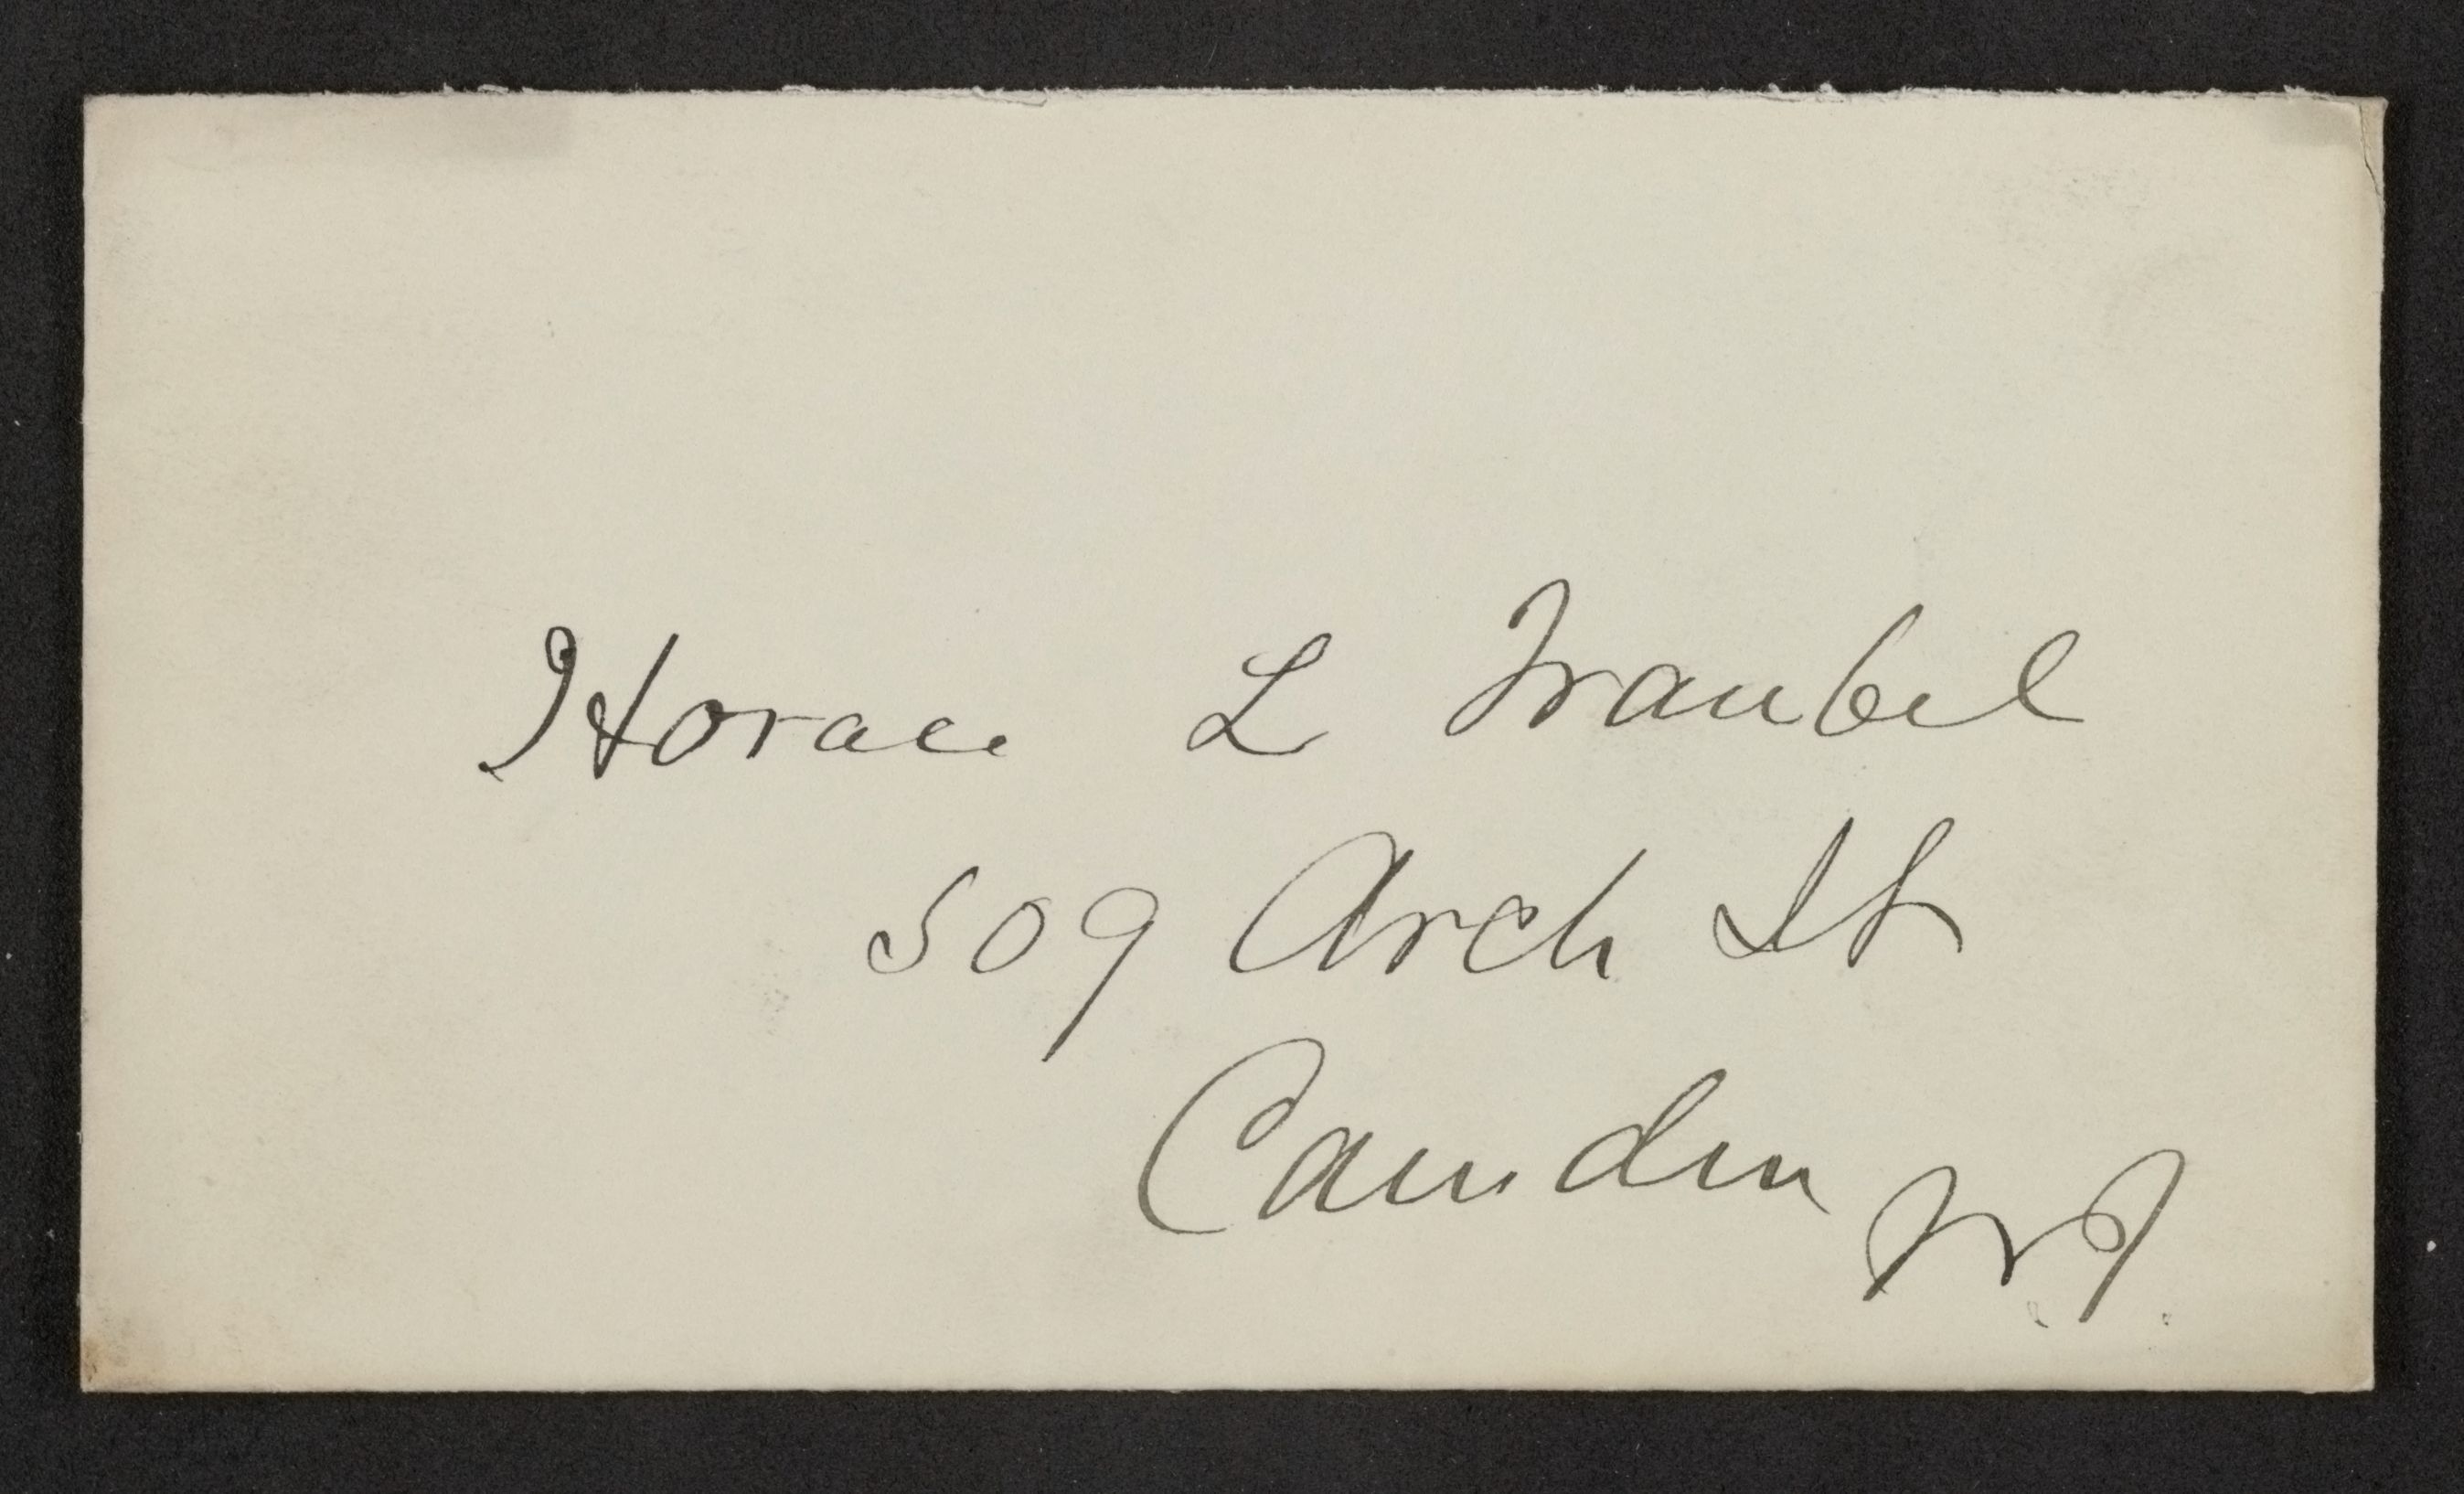 Horace L Traubel
509 Arch St
Camden N.J.